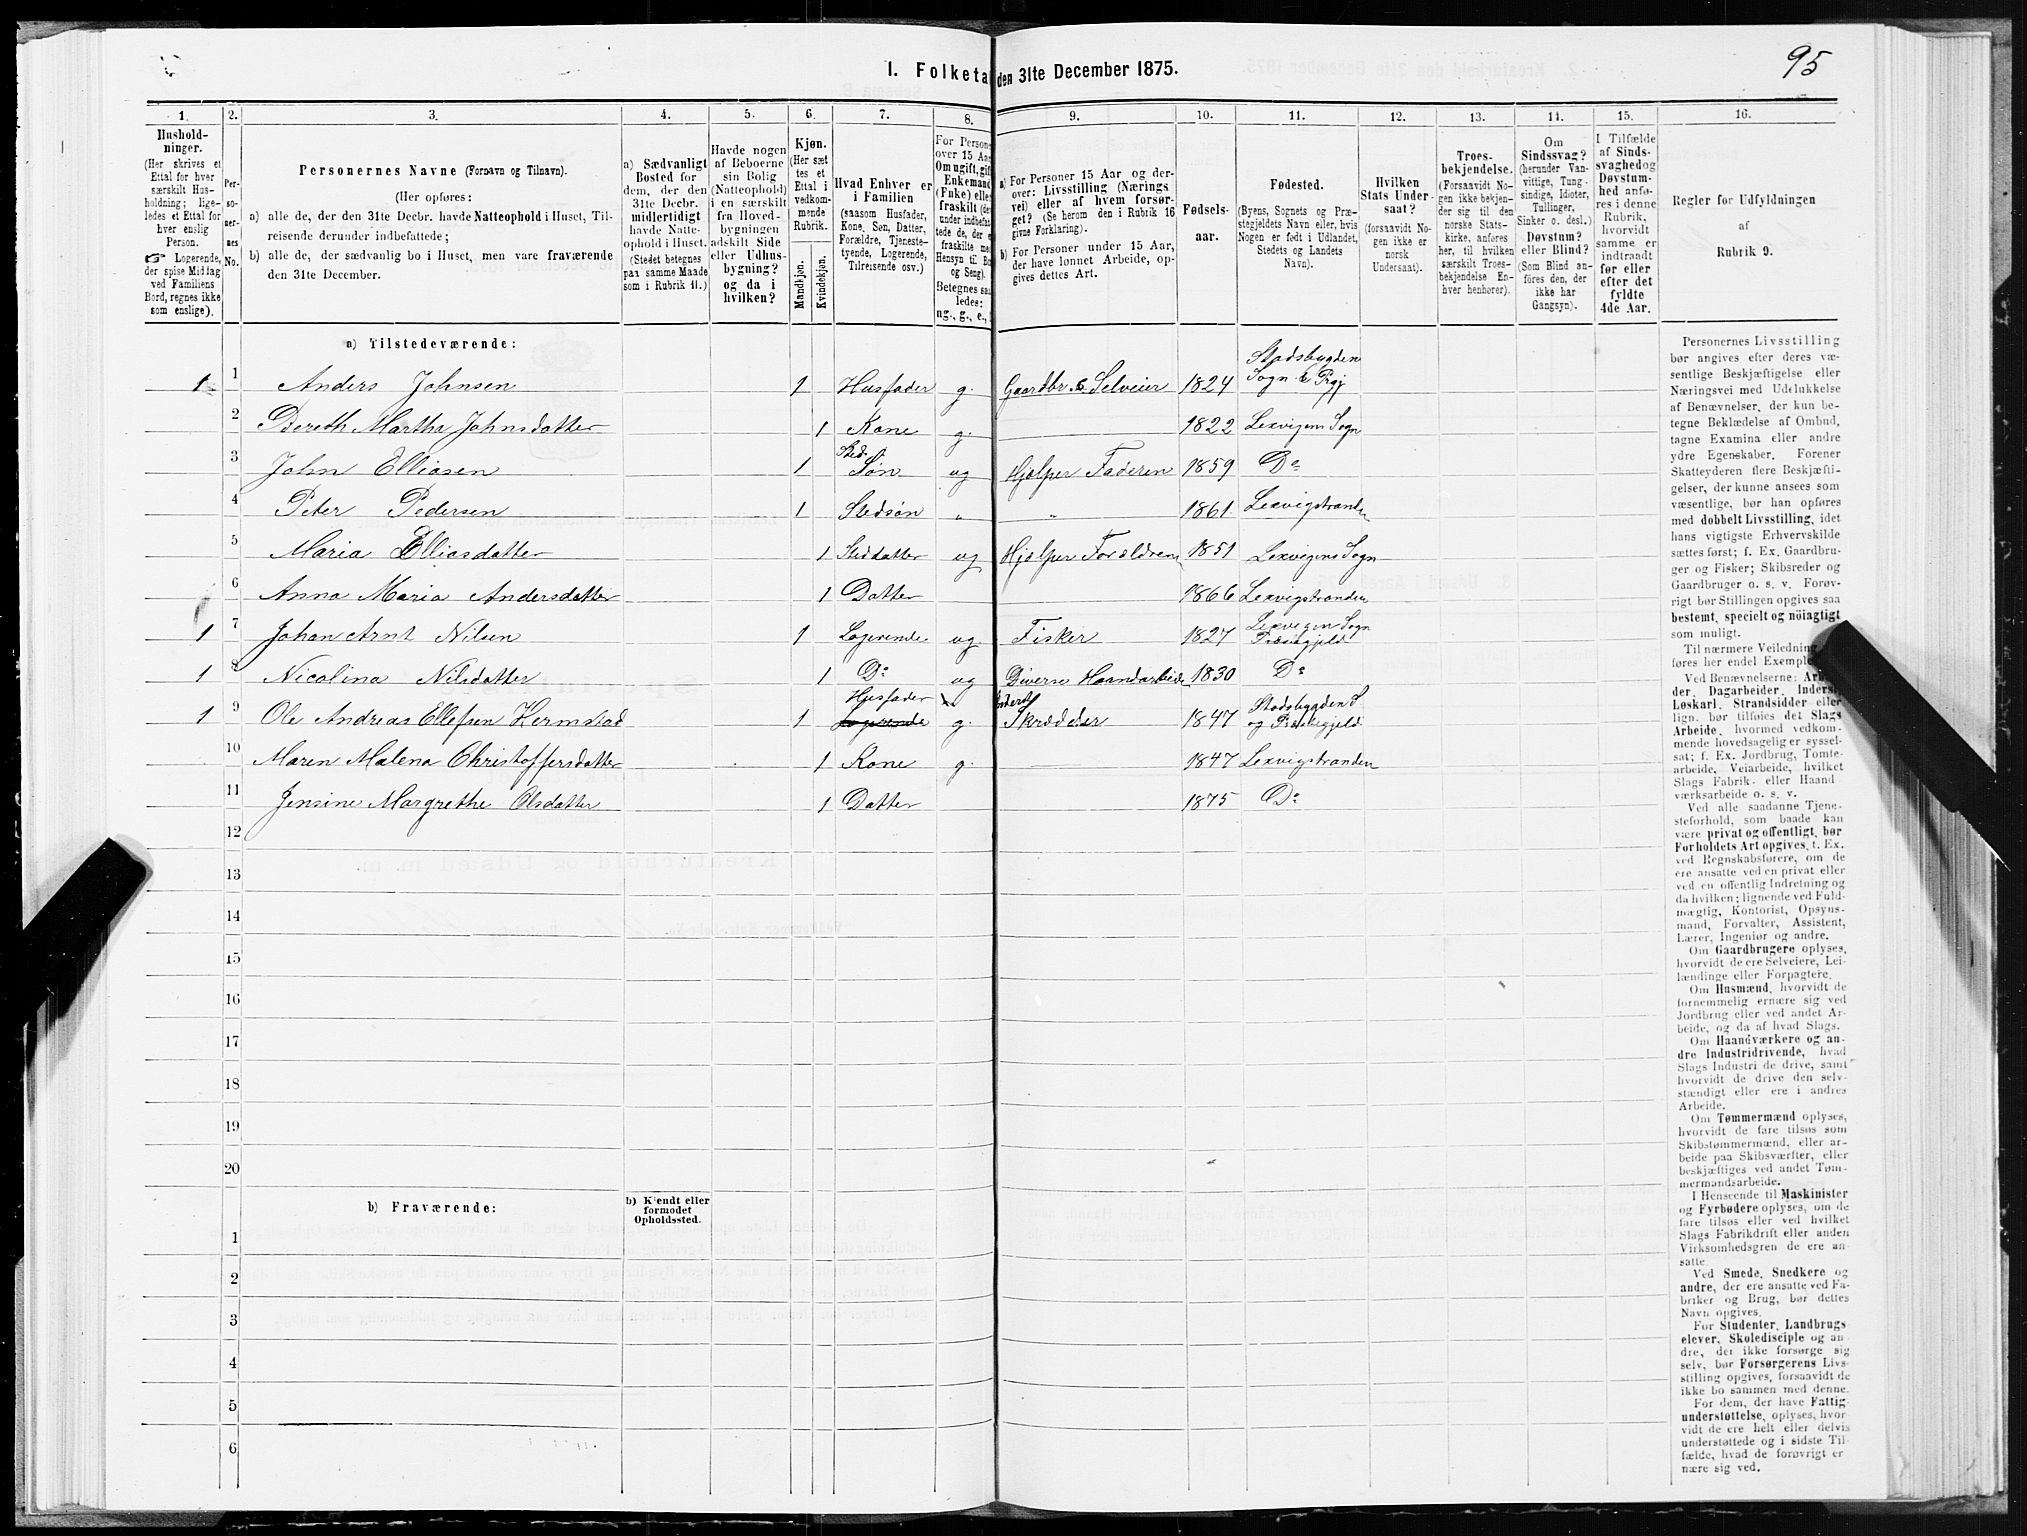 95
1. Folketa den 31te December 1875.
1. 2. 3. 4. 5. 6. 7. 8. 9. 10. 11. 12. 13. 14. 15. 16.
Hushold-
ninger.
(Her skrives et
Ettal for hver
særskilt Hus-
holdning; lige-
ledes et Ettal for
hver enslig
Person.
Logerende,
der spise Middag
ved Familiens
Bord, regnes ikke
som enslige).
Per-
so-
ner-
nes
No.
Personernes Navne (Fornavn og Tilnavn).
(Her opføres:
a) alle de, der den 31te Decbr. havde Natteophold i Huset, Til-
reisende derunder indbefattede;
b) alle de, der sædvanlig bo i Huset, men vare fraværende
den 31te December.
a) Sædvanligt
Bosted for
dem, der den
31te Decbr.
midlertidigt
havde Natte-
ophold i Huset.
(Stedet betegnes
paa samme Maade
som i Rubrik 11.)
Havde nogen
af Beboerne
sin Bolig
(Natteophold)
i en særskilt
fra Hoved-
bygningen
adskilt Side
eller Udhus-
bygning?
og da i
hvilken?
Kjøn.
(Her sæt
tes et
Ettal i
vedkom-
mende
Rubrik.
Mandkjøn.
Kvindekjøn.
Hvad Enhver er
i Familien
(saasom Husfader,
Kone, Søn, Datter,
Forældre, Tjeneste-
tyende, Logerende,
Tilreisende osv.).
For Persone
over 15 Aar
Om ugift, gift
Enkemand
(Enke) eller
fraskilt (der
under indbefat-
tede de, der e
fraskilte me
Hensyn til Bo
og Seng).
Betegnes saa
ledes:
ug., g., e.,
a) For Personer 15 Aar og der-
over: Livsstilling (Nærings
vei) eller af hvem forsør-
get? (Se herom den i Rubrik 16
givne Forklaring).
b) For Personer under 15 Aar,
der have lønnet Arbeide, op-
gives dettes Art.
Fødsels-
aar.
Fødested.
(Byens, Sognets og Præ-
stegjeldets Navn eller, hvis
Nogen er født i Udlandet,
Stedets og Landets
Navn).
Hvilken
Stats Under-
saat?
(forsaavidt No-
gen ikke er
norsk
Undersaat).
Troes-
bekjendelse.
(Forsaavidt No-
gen ikke bekjen-
der sig til den
norske Stats-
kirke, anføres
her, til hvilken
særskilt Troes-
bekjendelse En-
hver henhører).
Om
Sindssvag?
(herunder Van-
vittige, Tung-
sindige, Idioter,
Tullinger,
Sinker o. desl.)
Døvstum?
eller Blind?
(Som Blind an-
føres den, der
ikke har
Gangsyn).
I Tilfælde
af Sinds-
svaghed og
Døvstum-
hed anfø-
res i denne
Rubrik,
hvorvidt
samme er
indtraadt
før eller
efter det
fyldte
4de Aar.
Regler for Udfyldningen
af
Rubrik 9.
a) Tilstedeværende:
1 1 Anders Johnsen 1 Husfader g. Gaardbr & Selveier 1824 Stadsbygden Sogn & Prgj
2 Bereth Martha Johnsdatter 1 Kone g. 1822 Lexvigens Sogn
3 John Elliasen 1 Sted Søn ug Hjelper Faderen 1859 Do
4 Peter Pedersen 1 Stedsøn „ „ 1861 Lexvigstranden
5 Maria Elliasdatter 1 Steddatter ug Hjelper Forældrene 1851 Lexvigens Sogn
6 Anna Maria Andersdatter 1 Datter 1866 Lexvigstranden
1 7 Johan Arnt Nilsen 1 Logerende ug Fisker 1827 Lexvigen Sogn Præstegjeld
1 8 Nicolina Nilsdatter 1 Do ug Diverse Haandarbeide 1830 Do
1 9 Ole Andreas Ellefsen Hermstad 1 Husfader Logerende g. Skrædder 1847 Stadsbygden S og Præstegjeld
10 Maren Malena Christoffersdatter 1 Kone g. 1847 Lexvigstranden
11 Jensine Margrethe Olsdatter 1 Datter 1875 Do
12
13
14
15
16
17
18
19
20
b) Fraværende:
b) Kjendt eller
formodet
Opholdssted.
1
2
3
4
5
6
Personernes Livsstilling
bør angives efter deres væ-
sentlige Beskjæftigelse eller
Næringsvei med Udelukkelse
af Benævnelser, der kun be-
tegne Beklædelse af Ombud,
tagne Examina eller andre
ydre Egenskaber. Forener
Skatteyderen flere Beskjæfti-
gelser, der kunne ansees som
væsentlige, bør han opføres
med dobbelt Livsstilling, idet
hans vigtigste Erhvervskilde
sættes først; f. Ex. Gaardbru-
ger og Fisker; Skibsreder og
Gaardbruger o. s. v. Forøv-
rigt bør Stillingen opgives saa
bestemt, specielt og nöiagtigt
som muligt.
Til nærmere Veiledning
føres her endel Exemple
Ved Benævnelserne: Arb
der, Dagarbeider, Inderst
Løskarl, Strandsidder eller
lign. bør tilføies det Slags
Arbeide, hvormed vedkom-
mende hovedsagelig er syssel-
sat; f. Ex. Jordbrug, Tomte-
arbeide, Veiarbeide, hvilket
Slags Fabrik- eller Haand-
værksarbeide o. s. v.
Ved alle saadanne Tjene-
steforhold, som baade kan
være privat og offentligt, bør
Forholdets Art opgives, t. Ex.
ved Regnskabsførere, om de
ere ansatte ved en privat eller
ved en offentlig Indretning og
da hvilken; lignende ved Fuld-
mægtig, Kontorist, Opsyns-
mand, Forvalter, Assistent,
Lærer, Ingeniør og andre.
Om Gaardbrugere oplyses,
hvorvidt de ere Selveiere, Lei-
lændinge eller Forpagtere.
Om Husmænd, hvorvidt de
fornemmelig ernære sig ved
Jordbrug eller ved andet Ar-
beide, og da af hvad Slags.
Om Haandværkere og an-
dre Industridrivende, hvad
Slags Industri de drive, samt
hvorvidt de drive den selv-
stændigt eller ere i andres
Arbeide.
Om Tømmermænd oplyses,
hvorvidt de fare tilsøs som
Skibstømmermænd, eller ar-
beide paa Skibsværfter, eller
beskjæftiges ved andet Tøm-
mermandsarbeide.
I Henseende til Maskinister
og Fyrbødere oplyses, om de
fare tilsøs eller ved hvilket
Slags Fabrikdrift eller anden
Virksomhedsgren de ere an-
satte.
Ved Smede, Snedkere og
andre, der ere ansatte ved Fa-
briker og Brug, bør dettes
Navn opgives.
For Studenter, Landbrugs-
elever, Skoledisciple og an-
dre, der ikke forsørge sig
selv, bør Forsørgerens Livs-
stilling opgives, forsaavidt de
ikke bo sammen med denne.
For dem, der have Fattig-
understøttelse, oplyses, hvor-
vidt de ere helt eller delvis
understøttede og i sidste Til-
fælde, hvad de forøvrigt er
nære sig ved.